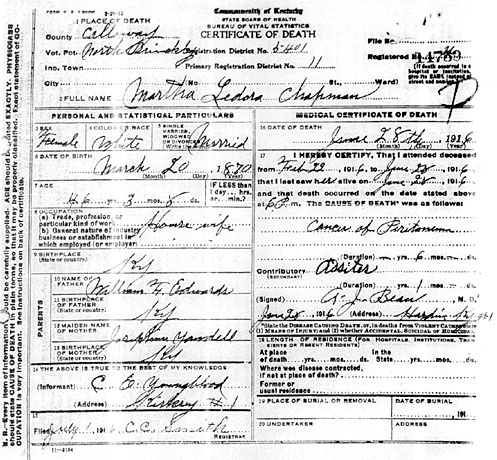 FORM V. S. 1-200M
8-21-12
1 PLACE OF DEATH
County Calloway
Vot. Pct. North Brinkley
Inc. Town
City
Commonwealth of Kentucky
STATE BOARD OF HEALTH
BUREAU OF VITAL STATISTICS
CERTIFICATE OF DEATH
Registration District No. 5401
Primary Registration District No. 11
(No. St., Ward)
File No.
Registered No. 14769
[If death occurred in a hospital or institution, give its NAME instead of street and number.]
2 FULL NAME Martha Ledora Chapman
PERSONAL AND STATISTICAL PARTICULARS
3 SEX Female
4 COLOR OR RACE White
5 SINGLE, MARRIED, WIDOWED OR DIVORCED (Write the word) Married
6 DATE OF BIRTH
March 20, 1870
(Month) (Day) (Year)
7 AGE
46 yrs. 3 mos. 8 ds.
IF LESS than 1 day, ... hrs. or ... min.?
8 OCCUPATION
(a) Trade, profession, or particular kind of work House wife
(b) General nature of industry business or establishment in which employed (or employer)
9 BIRTHPLACE
(State or country) Ky
PARENTS
10 NAME OF FATHER William F. Edwards
11 BIRTHPLACE OF FATHER
(State or country) Ky
12 MAIDEN NAME OF MOTHER Josephine Yandell
13 BIRTHPLACE OF MOTHER
(State or country) Ky
14 THE ABOVE IS TRUE TO THE BEST OF MY KNOWLEDGE
(Informant) C. C. Youngblood
(Address) Kirksey # 1
15
Filed July 1, 1916 C. C. Smith
REGISTRAR
11-9184
MEDICAL CERTIFICATE OF DEATH
16 DATE OF DEATH
June 28th, 1916
(Month) (Day) (Year)
17 I HEREBY CERTIFY, That I attended deceased
from Feb 22, 1916, to June 28, 1916
that I last saw her alive on June 28, 1916
and that death occurred on the date stated above
at 6 P.m. The CAUSE OF DEATH* was as follows:
Cancer of Peritoneum
(Duration) yrs. 6 mos. ds.
Contributory Ascites
(SECONDARY)
(Duration) yrs. 1 mos. ds.
(Signed) Bean M. D.
June 28, 1916 (Address) Hardin Ky
*State the DISEASE CAUSING DEATH, or, in deaths from VIOLENT CAUSES state (1) MEANS OF INJURY; and (2) whether ACCIDENTAL, SUICIDAL or HOMICIDAL
18 LENGTH OF RESIDENCE (FOR HOSPITALS, INSTITUTIONS, TRANSIENTS OR RECENT RESIDENTS)
At place of death yrs. mos. ds.
In the State yrs. mos. ds.
Where was disease contracted, if not at place of death?
Former or usual residence
19 PLACE OF BURIAL OR REMOVAL
DATE OF BURIAL
, 191
20 UNDERTAKER
ADDRESS